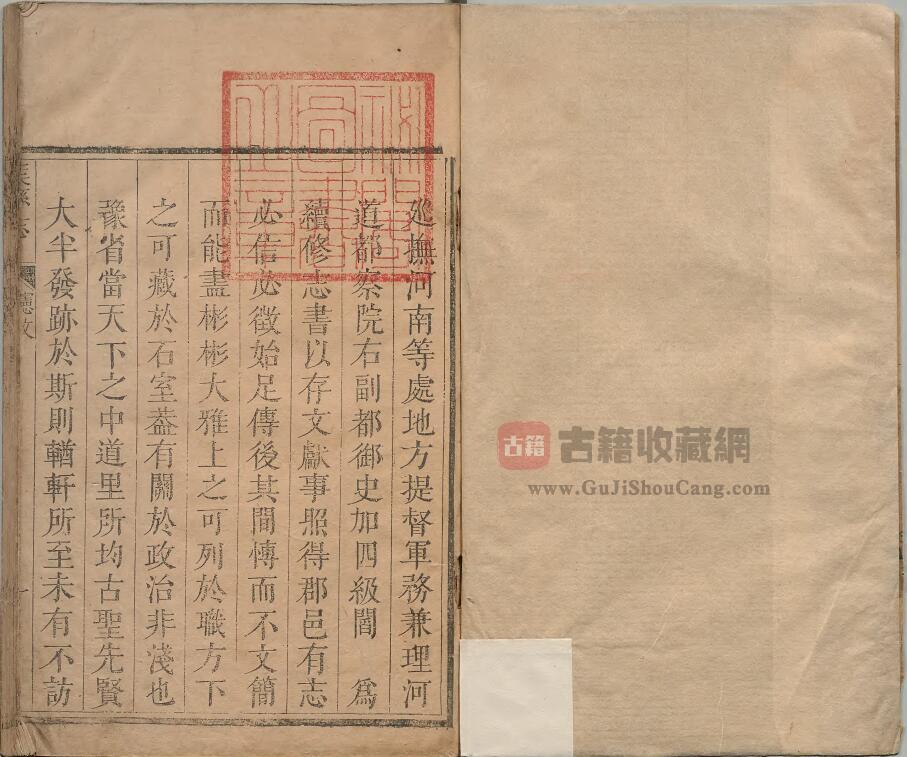 巡撫河南等處地方提督軍務兼理河
道都察院右副都御史加四級閻　為
續修志書以存文獻事照得郡邑有志
必信必徵始足傳後其間慱而不文簡
而能盡彬彬大雅上之可列於職方下
之可藏於石室葢有關於政治非淺也
豫省當天下之中道里所均古聖先賢
大半發跡於斯則輶軒所至未有不訪
憲文
一
古籍
古籍收藏網
www.GuJiShouCang.com